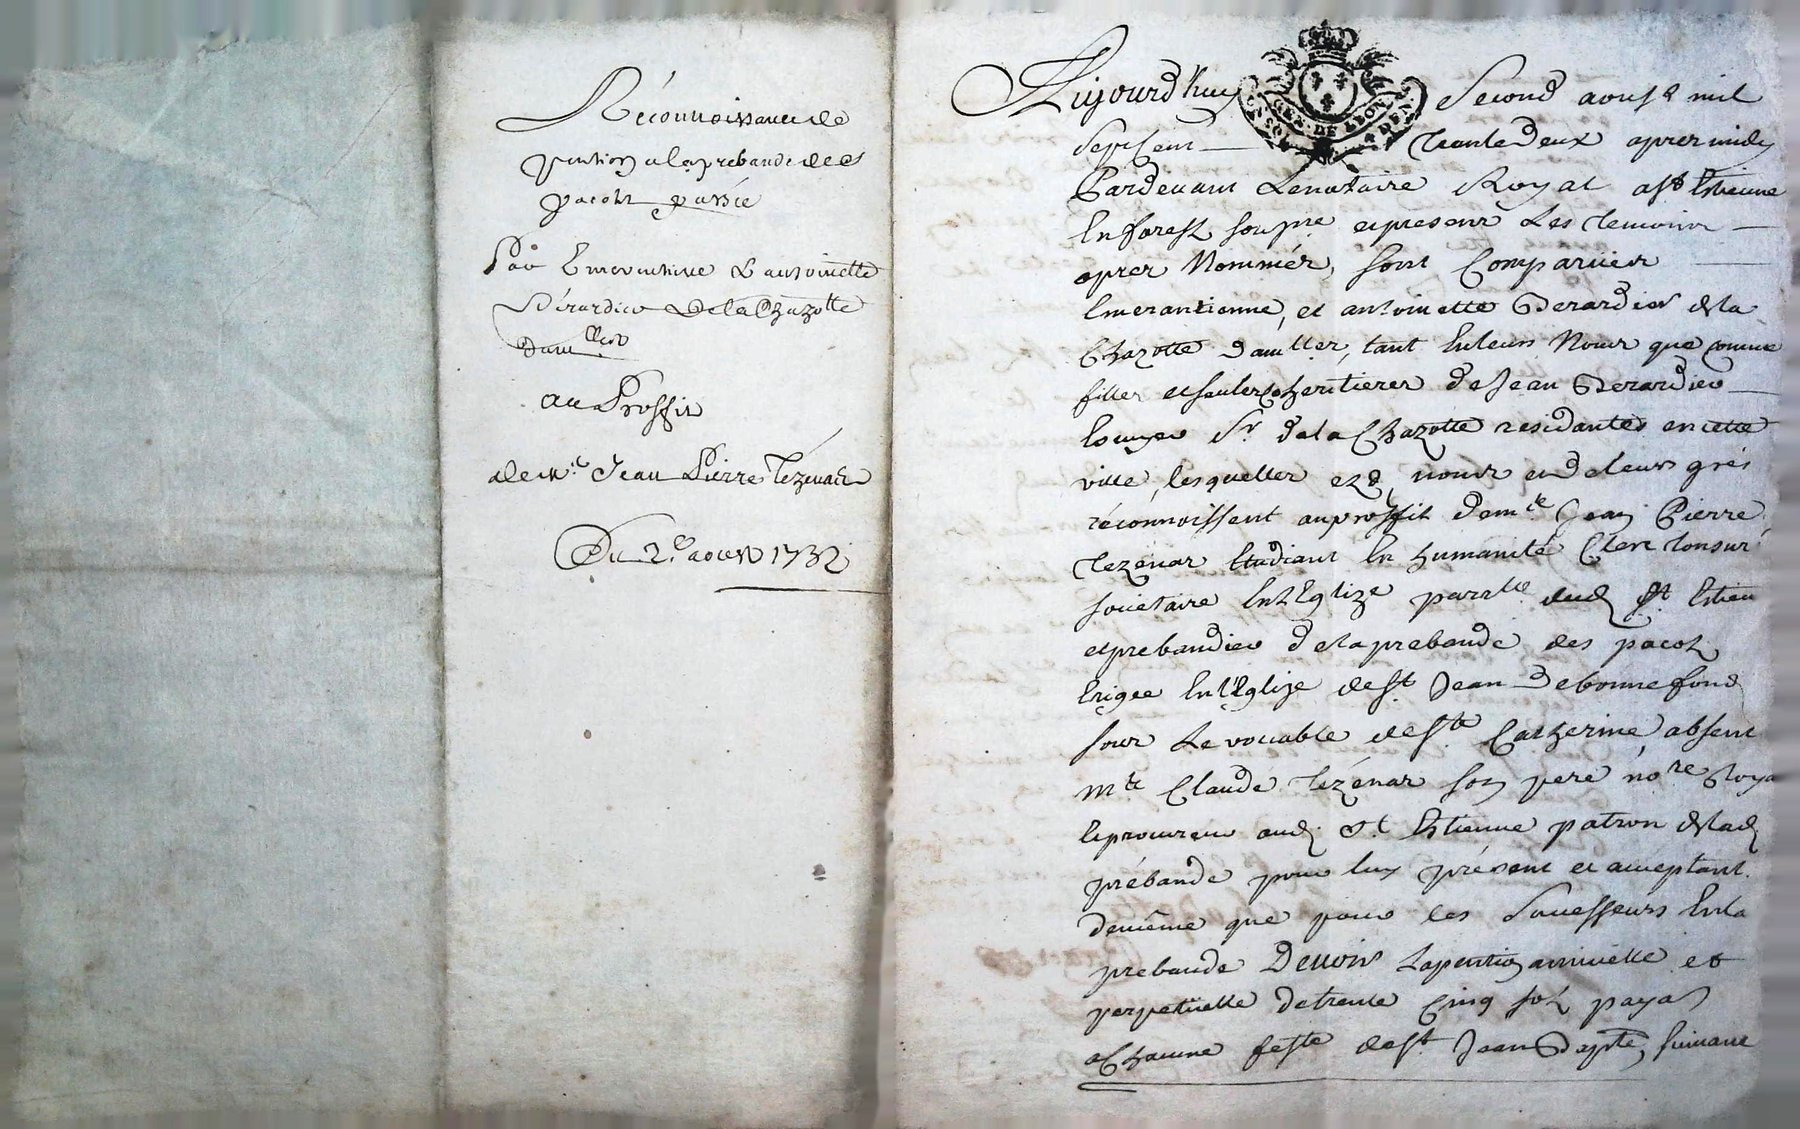 Réconnoissance de
pention a la prebande des
pacots passée
Par Emerentienne & antoinette
Dérardier de la Chazotte
dam.lles
au Proffit
de m.e Jean Pierre Tézénar
Du 2.e aoust 1732
Aujourd'huy Second aoust mil
sept cent trante deux apres midy
Pardevant Le notaire Royal a St Estienne
En forest sous.ne et present Les temoins
apres Nommés, sont Comparües
Emerantienne, et antoinette Derardier de la
Chazotte dam.lles, tant En leurs Noms que comme
filles et seules heritieres de Jean Derardier
Ecuyer Sr. de la Chazotte residantes en cette
ville, lesquelles ezd. noms et de leurs grés
réconnoissent au proffit de m.re Jean Pierre
Tezénar Etudiant En humanité Clerc tonsuré
societaire En L'Eglize parr.lle dud. St. Estien
et prebandier de la prebande des pacots
Erigée En l'Eglize de St. Jean de bonnefond
sous Le vocable de Ste Catherine, absent
m.re Claude Tézénar son pere no.re Roya
et procureur aud. St. Estienne patron de lad.
prébande pour luy présent et acceptant
de même que pour les Successeurs En la
prebande Devoir La pention annüelle et
perpetüelle de trente Cinq sols payab
a Chacune feste de St. Jean Bapte, suivant